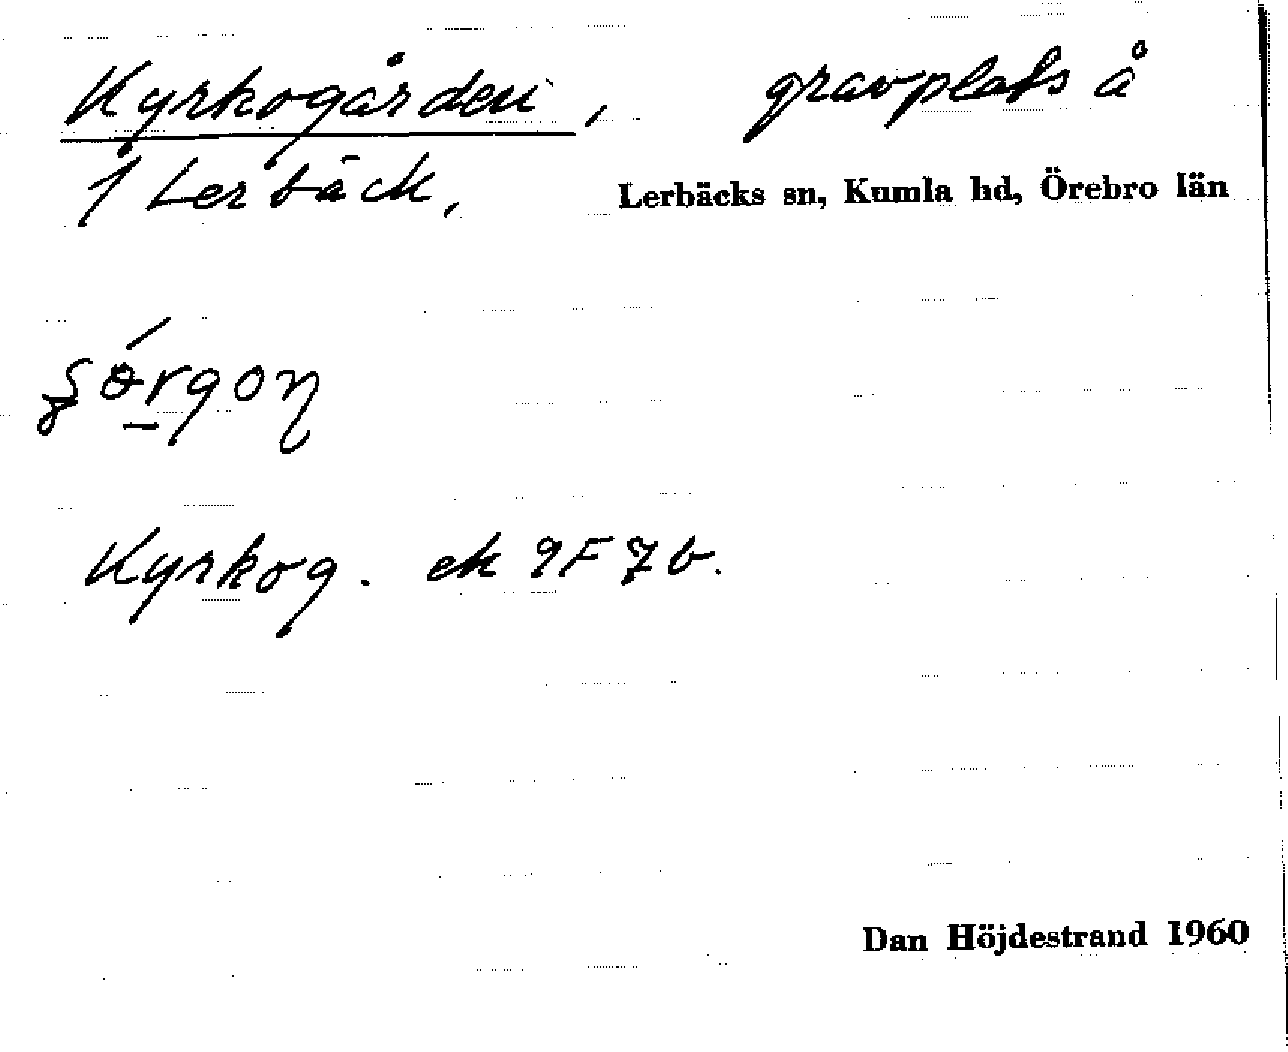 Kyrkogården, gravplats å
1 Lerbäck, Lerbäcks sn, Kumla hd, Örebro län
Kyrkog. ek 9F 7b.
Dan Höjdestrand 1960